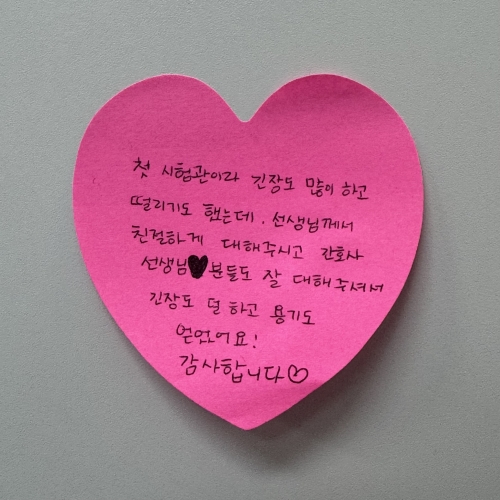 첫 시험관이라 긴장도 많이 하고
떨리기도 했는데. 선생님께서
친절하게 대해주시고 간호사
선생님♥분들도 잘 대해주셔서
긴장도 덜 하고 용기도
얻었어요!
감사합니다♡